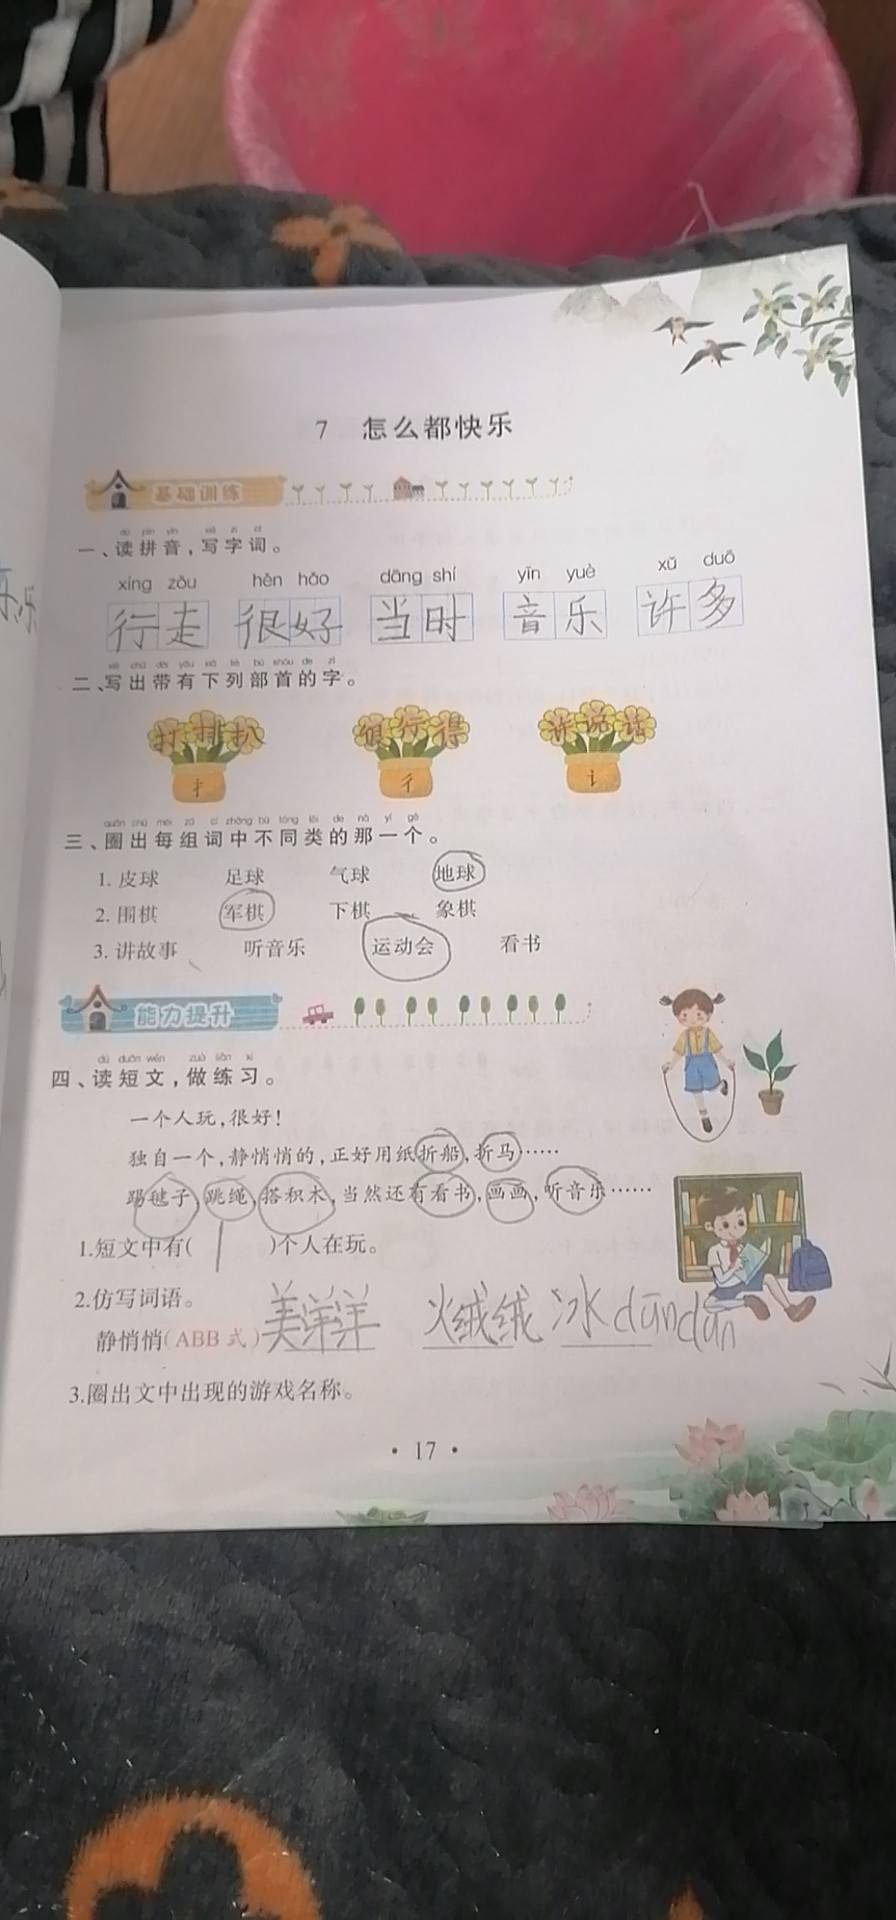 7 怎么都快乐
基础训练
dú pīn yīn xiě zì cí
一、读拼音,写字词。
xíng zǒu hěn hǎo dāng shí yīn yuè xǔ duō
行走 很好 当时 音乐 许多
xiě chū dài yǒu xià liè bù shǒu de zì
二、写出带有下列部首的字。
打 排 扒 很 行 得 许 说 话
扌 彳 讠
quān chū měi zǔ cí zhōng bù tóng lèi de nà yí gè
三、圈出每组词中不同类的那一个。
1. 皮球 足球 气球 地球
2. 围棋 军棋 下棋 象棋
3. 讲故事 听音乐 运动会 看书
能力提升
dú duǎn wén zuò liàn xí
四、读短文,做练习。
一个人玩,很好!
独自一个,静悄悄的,正好用纸折船,折马……
踢毽子,跳绳,搭积木,当然还有看书,画画,听音乐……
1.短文中有( 1 )个人在玩。
2.仿写词语。
静悄悄(ABB 式) 美洋洋 火绒绒 冰dūndūn
3.圈出文中出现的游戏名称。
• 17 •